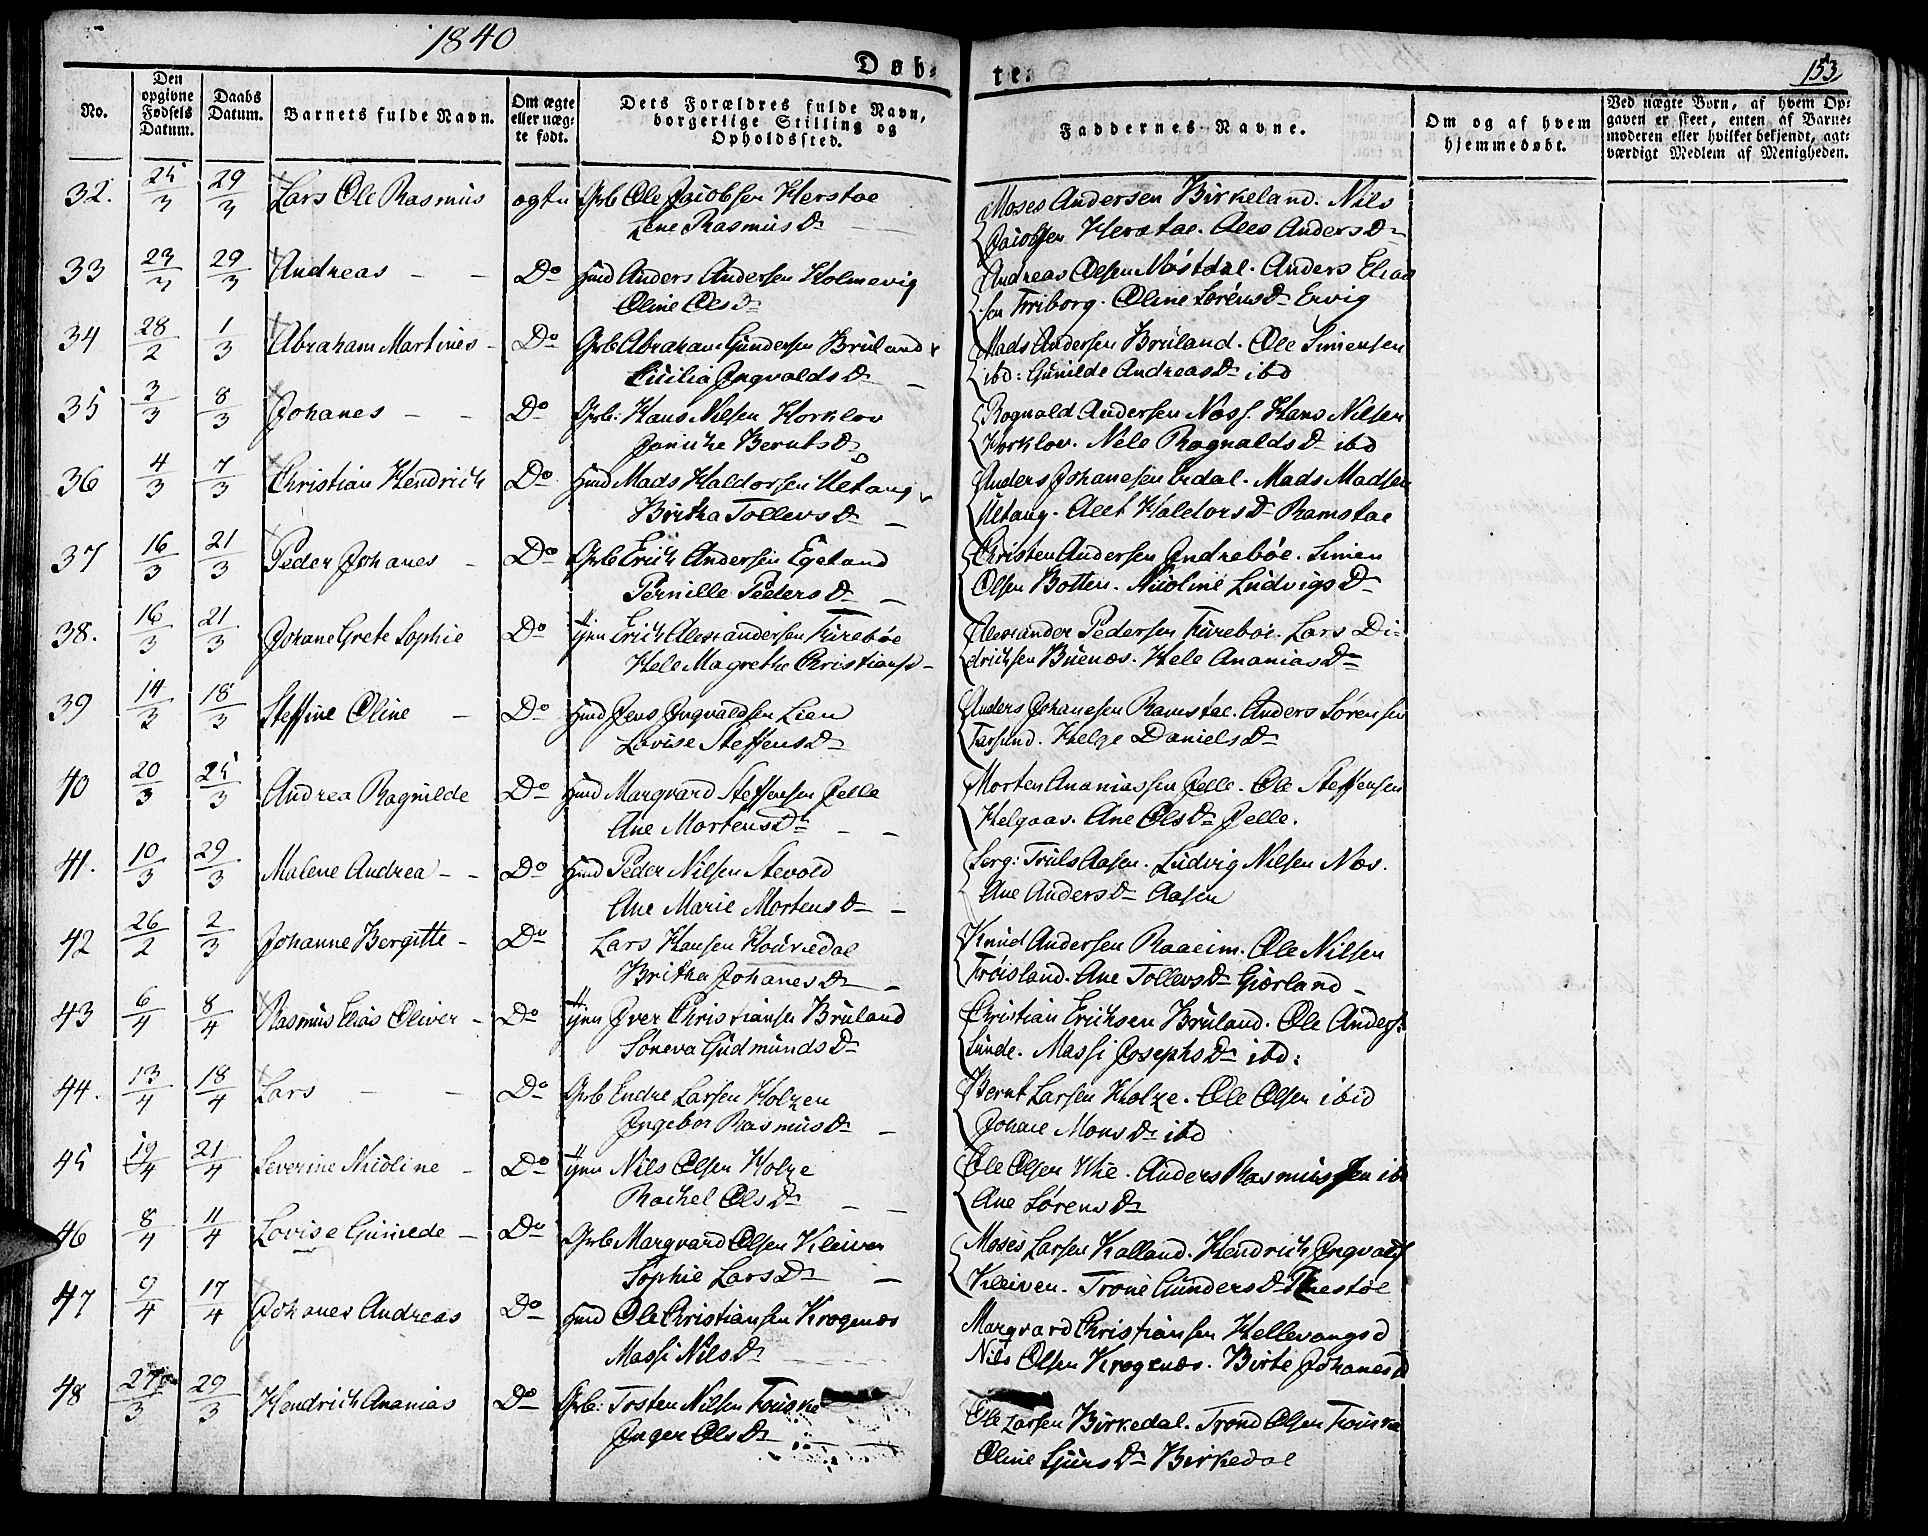 1840
153
Døb=
te.
No.
Den opgivne Fødsels Datum.
Daabs Datum.
Barnets fulde Navn.
Om ægte eller uæg- te født.
Dets Forældres fulde Navn, borgerlige Stilling og Opholdssted.
Faddernes Navne.
Om og af hvem hjemmedøbt.
Ved uægte Børn, af hvem Op- gaven er skeet, enten af Barne- moderen eller hvilket bekjendt, agt- værdigt Medlem af Menigheden.
32. 25/3 29/3 Lars Ole Rasmus ægte Grb Ole Jacobsen Herstae
Lene Rasmus Dr
Moses Andersen Birkeland. Nils
Jacobsen Herstae. Anders Dr
33 23/3 29/3 Andreas Do Hmd Anders Andersen Holmevig
Oline Ols Dr
Andreas Olsen Møstdal. Anders Elias
sen Friborg. Oline Sørens Dr Ervig
34 28/2 1/3 Abraham Martines Do Grb Abraham Gundersen Bruland
Cicilia Ingvalds Dr
Mads Andersen Bruland. Ole Simensen
ibd: Gunilde Andreas Dr ibd
35 3/3 8/3 Johanes Do Grb: Hans Nilsen Horklov
Janiche Bernts Dr
Rognald Andersen Næss. Hans Nilsen
Horklov. Nele Ragnalds Dr ibd
36 4/3 7/3 Christian Hendrich Do Hmd Mads Haldorsen Uetang
Britha Tollevs Dr
Anders Johanesen Erdal. Mads Madsen
Uetang. Haldors Dr Ramstae
37 16/3 21/3 Peder Johanes Do Grb Erich Andersen Egeland
Pernille Peders Dr
Christen Andersen Indrebøe. Simen
Olsen Botten. Nicoline Ludvigs Dr
38. 16/3 21/3 Johane Grete Sophie Do Erich Alexandersen Furebøe
Hele Magrethe Christians
Alexander Pedersen Furebøe. Lars Di-
drichsen Buenæs. Hele Ananias Dr
39 14/3 18/3 Steffine Oline Do Hmd Jens Ingvaldsen Lien
Lovise Steffens Dr
Anders Johanesen Ramstae. Anders Sørensen
Helge Daniels Dr
40 20/3 25/3 Andrea Ragnilde Do Hmd Marqvard Steffensen Jelle
Ane Mortens Dr
Morten Ananiassen Jelle. Ole Steffensen
Helgaas. Ane Ols Dr Jelle.
41. 10/3 29/3 Malene Andrea Do Hmd Peder Nilsen Stevold
Ane Marie Mortens Dr
Serg: Truls Aasen. Ludvig Nilsen Næs.
Ane Anders Dr Aasen
42 26/2 2/3 Johanne Bergitte Do Lars Hansen
Britha Johanes Dr
Knud Andersen Raaeim. Ole Nilsen
Frøisland. Ane Tollevs Dr Gjørland
43 6/4 8/4 Rasmus Elias Oliver Do Iver Christiansen Bruland
Søneva Gudmunds Dr
Christian Erichsen Bruland. Ole Anders
Sunde. Massi Josephs Dr ibd:
44. 13/4 18/4 Lars Do Grb Endre Larsen Holzen
Ingebor Rasmus Dr
Bernt Larsen Holze. Ole Olsen ibid
Johane Mons Dr ibd
45 19/4 21/4 Severine Nicoline Do Nils Olsen Holze
Rachel Ols Dr
Ole Olsen Hie. Anders Rasmussen ibd
Ane Sørens Dr
46 8/4 11/4 Lovise Do Grb Marqvard Olsen Kleiven
Sophie Lars Dr
Moses Larsen Kalland. Hendrich Ingvalds
Kleiven. Trone Gunders Dr
47 9/4 17/4 Johanes Andreas Do Hmd Ole Christiansen Krogenæs
Massi Nils Dr
Marqvard Christiansen Hellevang
Nils Olsen Krogenæs. Birte Johanes D
48 27/3 29/3 Hendrich Ananias Do Grb: Tosten Nilsen
Inger Ols Dr
Ole Larsen Birkedal. Trond Olsen
Oline Sjurs Dr Birkedal